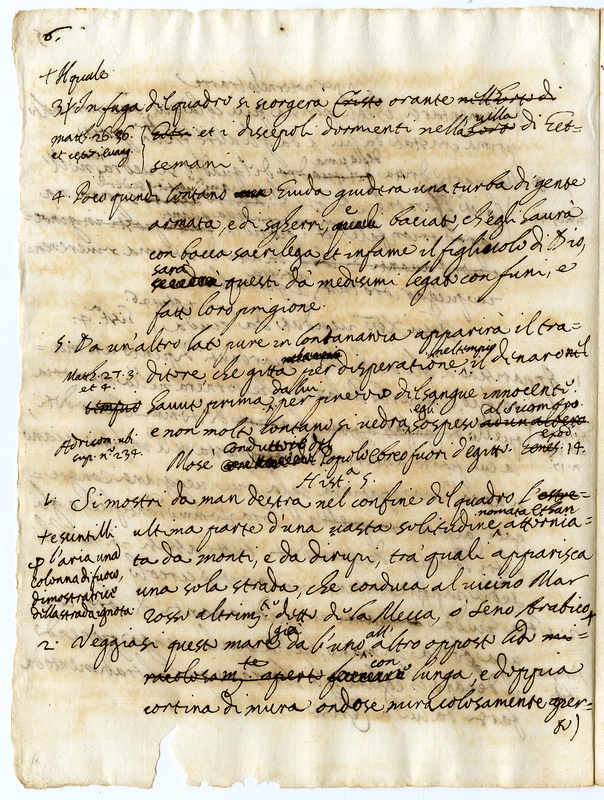 6.
+ Il quale
3. In fuga del quadro si scorgera Cristo orante nell'orto di
Matt. 26. 36.
villa
et i discepoli dormenti nella di Get=
semani
4. Poco quindi lontano Giuda guiderà una turba di gente
armata, e di sgherri, e baciato, ch'egli haurà
con bocca sacrilega, et infame il figliuolo di Dio,
sarà
questi da medesimi legato con funi, e
fatto loro prigione.
5. Da un'altro lato pure in lontananza apparirà il tra=
Matth. 27. 3.
et 4.
ditore, che gitta per disperatione, nel tempio il denaro
da lui
havuto prima per prezzo del sangue innocente
egli al
e non molto lontano si vedrà sospeso ad un albero
Adricom. ubi
sup. n.º 234.
Conduttore del
Mosè Popolo ebreo fuori d'egitto. exod. 14.
Hist.a 5.
1. Si mostri da man destra nel confine del quadro l'
nomata Ethan
ultima parte d'una vasta solitudine attornia=
ta da monti, e da dirupi, tra' quali apparisca
una sola strada, che conduca al vicino Mar
Rosso altrim.te detto de la Mecca, o Seno Arabico +
+ e scintilli
p l'aria una
colonna di fuoco,
dimostratrice
della strada ignota
2. Veggiasi questo mare già da l'uno all'altro opposto lido mi=
racolosam.te aperto con lunga, e doppia
cortina di mura ondose miracolosamente aper=
to)